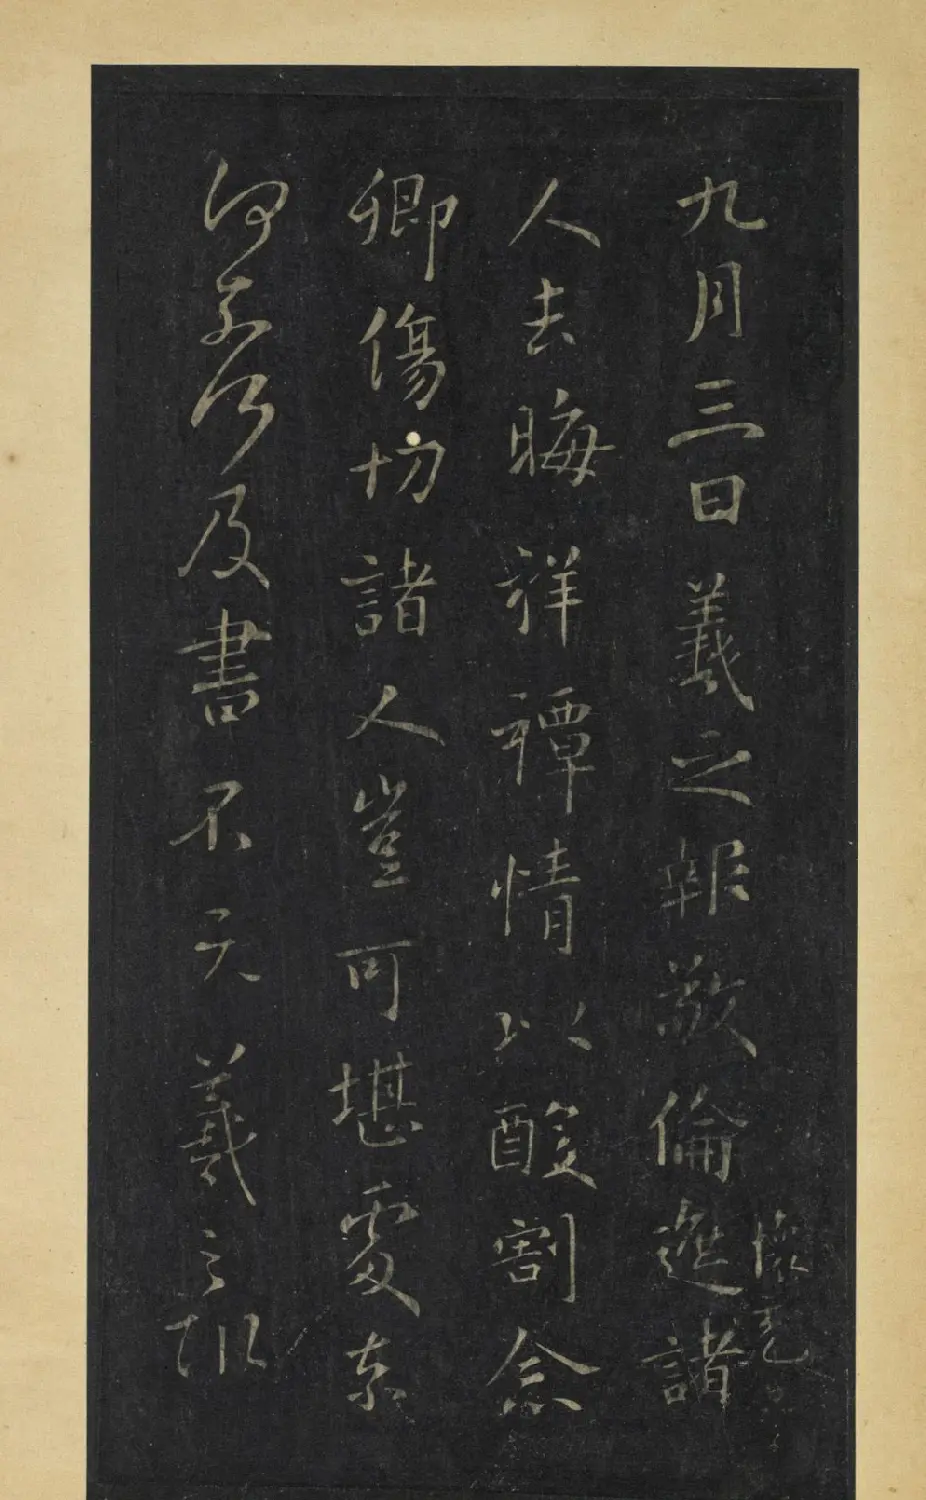 九月三日羲之報敬倫遮諸
懷充
人去晦祥禫情以酸割念
卿傷切諸人豈可堪處奈
何奈何及書不次羲之報